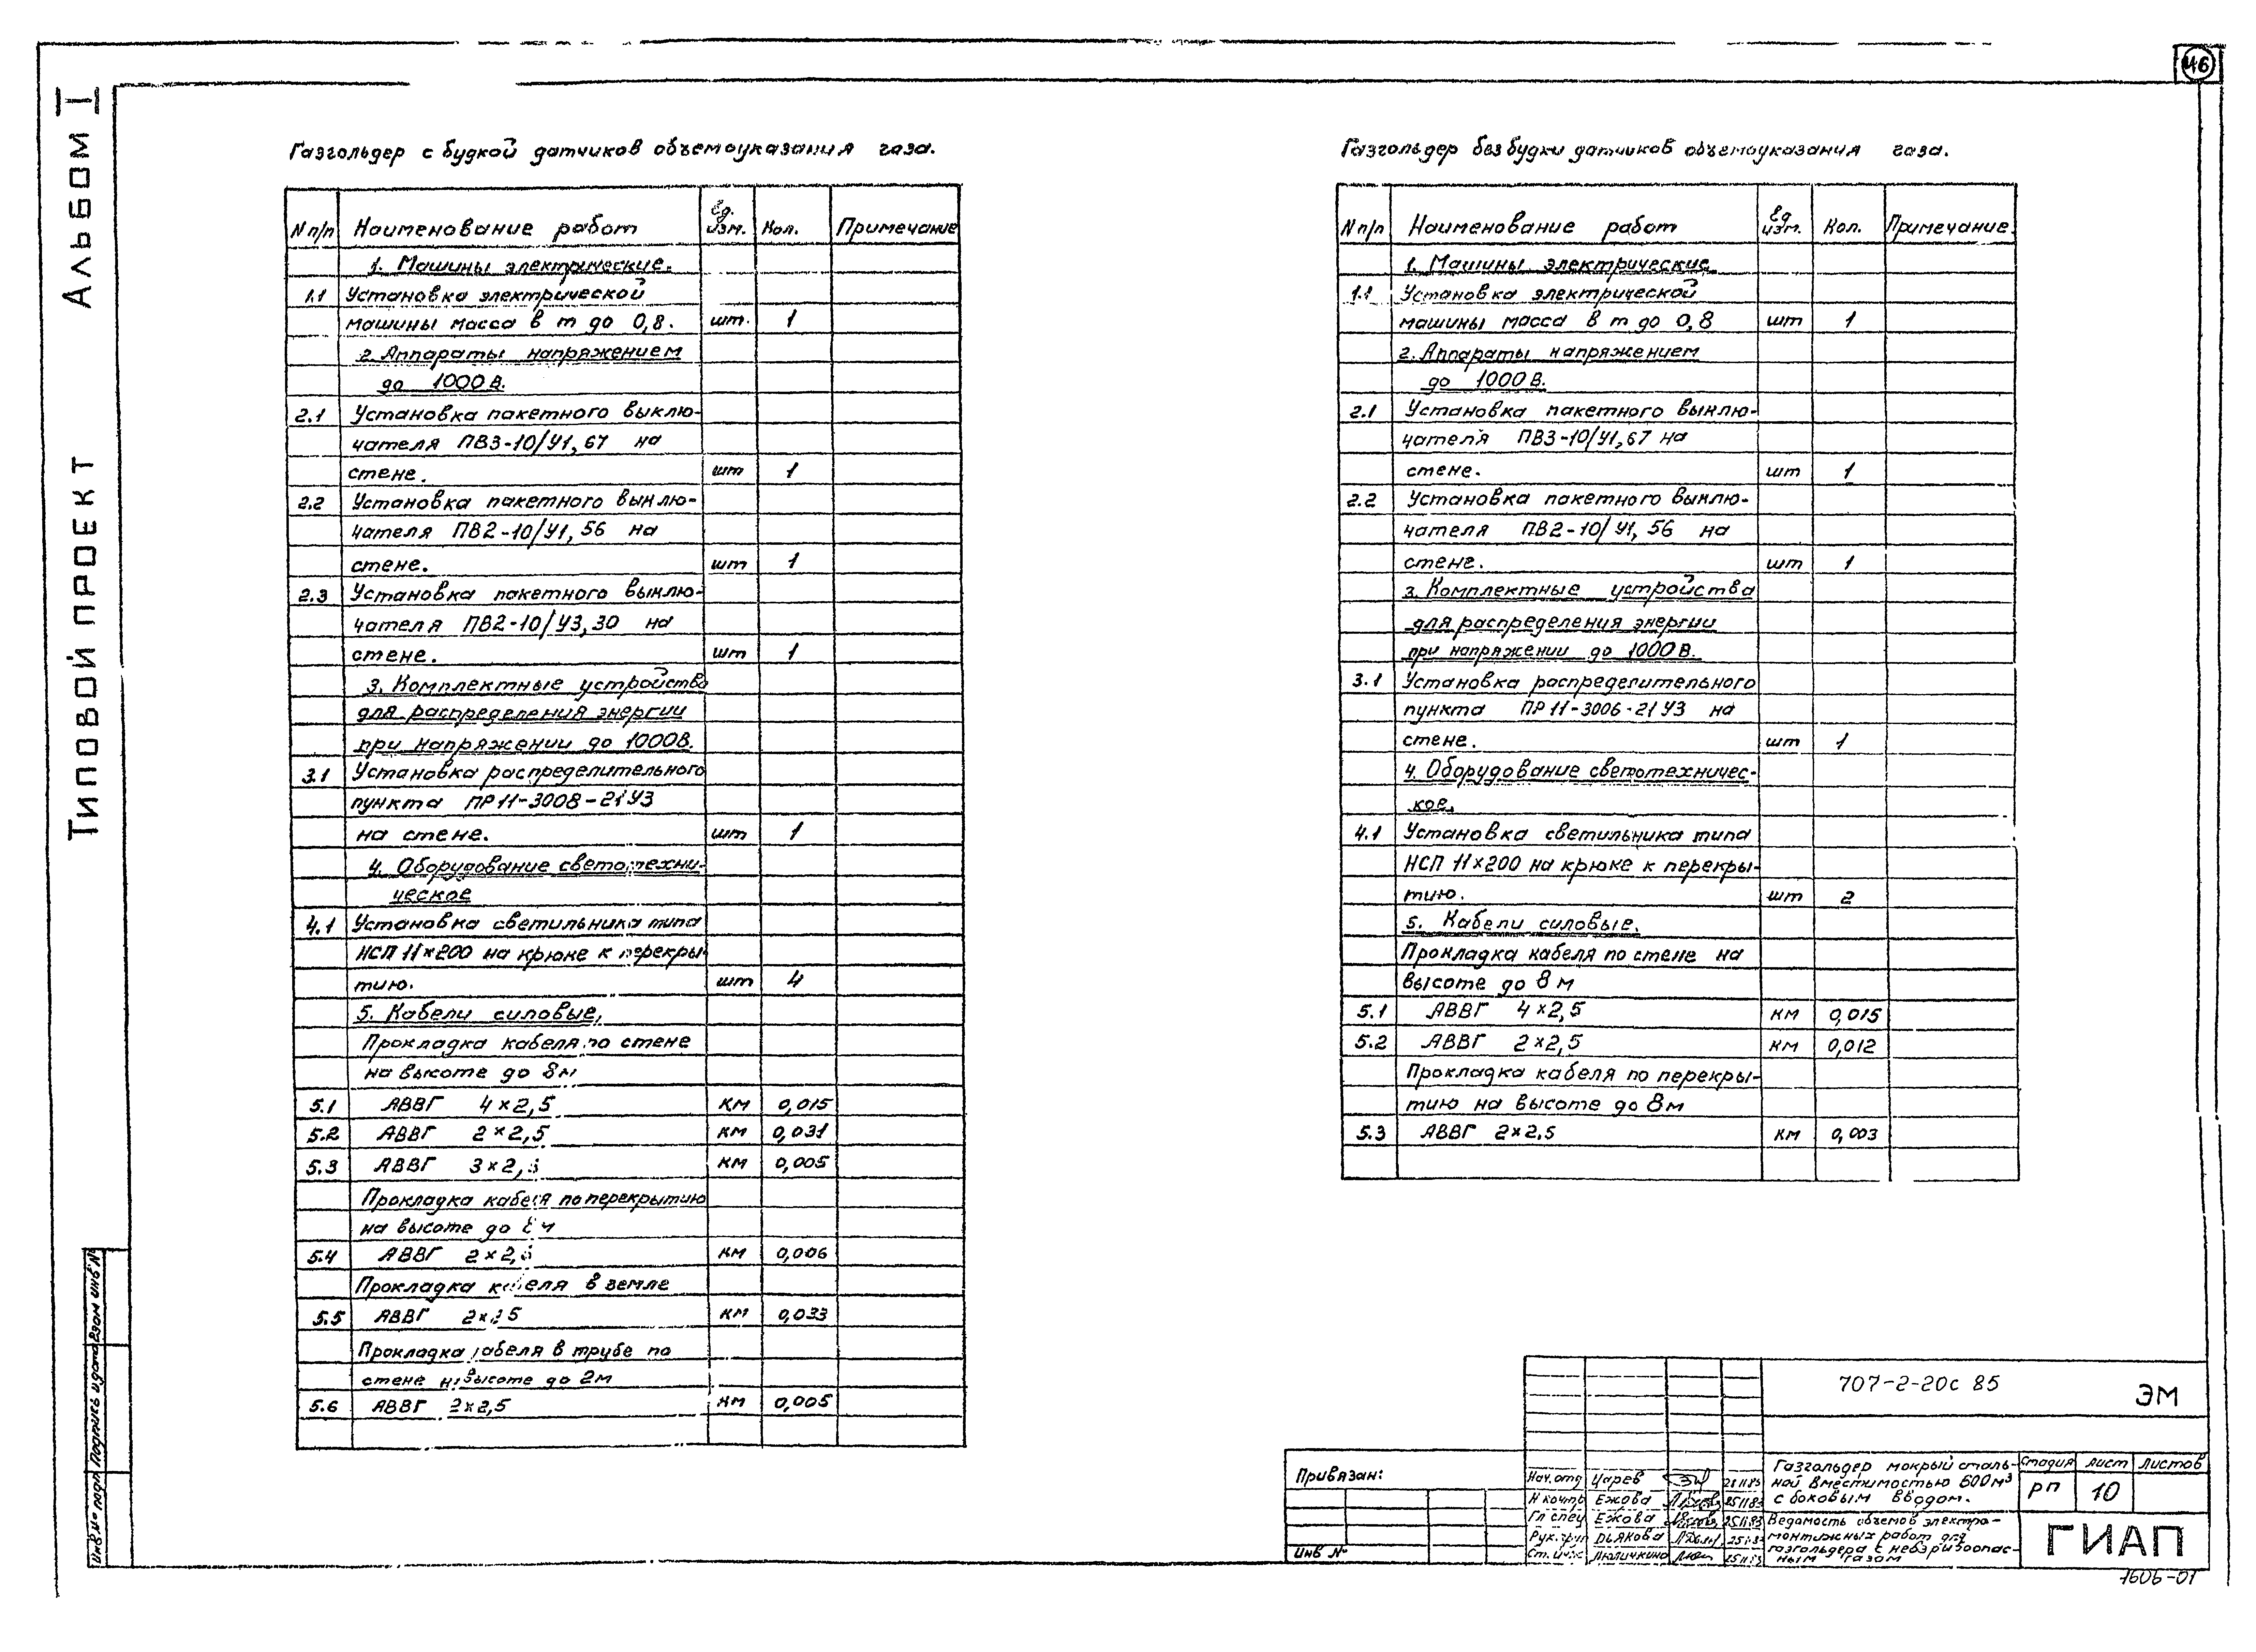 46
Альбом I
Типовой проект
Газгольдер с будкой датчиков объемоуказания газа.
N п/п Наименование работ Ед. изм. Кол. Примечание
1. Машины электрические.
1.1 Установка электрической
машины масса в т до 0,8. шт. 1
2. Аппараты напряжением
до 1000 В.
2.1 Установка пакетного выклю-
чателя ПВ3-10/У1, 67 на
стене. шт 1
2.2 Установка пакетного выклю-
чателя ПВ2-10/У1, 56 на
стене. шт 1
2.3 Установка пакетного выклю-
чателя ПВ2-10/У3, 30 на
стене. шт 1
3. Комплектные устройства
для распределения энергии
при напряжении до 1000В.
3.1 Установка распределительного
пункта ПР11-3008-21У3
на стене. шт 1
4. Оборудование светотехни-
ческое
4.1 Установка светильника типа
НСП 11×200 на крюке к перекры-
тию. шт 4
5. Кабели силовые.
Прокладка кабеля по стене
на высоте до 8м
5.1 АВВГ 4×2,5 км 0,015
5.2 АВВГ 2×2,5 км 0,031
5.3 АВВГ 3×2,5 км 0,005
Прокладка кабеля по перекрытию
на высоте до 8м
5.4 АВВГ 2×2,5 км 0,006
Прокладка кабеля в земле
5.5 АВВГ 2×2,5 км 0,033
Прокладка кабеля в трубе по
стене на высоте до 2м
5.6 АВВГ 2×2,5 км 0,005
Газгольдер без будки датчиков объемоуказания газа.
N п/п Наименование работ Ед изм. Кол. Примечание
1. Машины электрические
1.1 Установка электрической
машины масса в т до 0,8 шт 1
2. Аппараты напряжением
до 1000 В.
2.1 Установка пакетного выклю-
чателя ПВ3-10/У1, 67 на
стене. шт 1
2.2 Установка пакетного выклю-
чателя ПВ2-10/У1, 56 на
стене. шт 1
3. Комплектные устройства
для распределения энергии
при напряжении до 1000 В.
3.1 Установка распределительного
пункта ПР 11-3006-21У3 на
стене. шт 1
4. Оборудование светотехничес-
кое.
4.1 Установка светильника типа
НСП 11×200 на крюке к перекры-
тию. шт 2
5. Кабели силовые.
Прокладка кабеля по стене на
высоте до 8 м
5.1 АВВГ 4×2,5 км 0,015
5.2 АВВГ 2×2,5 км 0,012
Прокладка кабеля по перекры-
тию на высоте до 8 м
5.3 АВВГ 2×2,5 км 0,003
Инв.N подл Подпись и дата Взам инв.N
Привязан:
Инв N
707-2-20с 85
ЭМ
Нач.отд Царев
Н контр Ежова 25.11.83
Гл спец Ежова 25.11.83
Рук.груп Дьякова
Ст. инж
Газгольдер мокрый сталь-
ной вместимостью 600м³
с боковым вводом.
Стадия Лист Листов
РП 10
Ведомость объемов электро-
монтажных работ для
газгольдера с невзрывоопас-
ным газом
ГИАП
1606-01